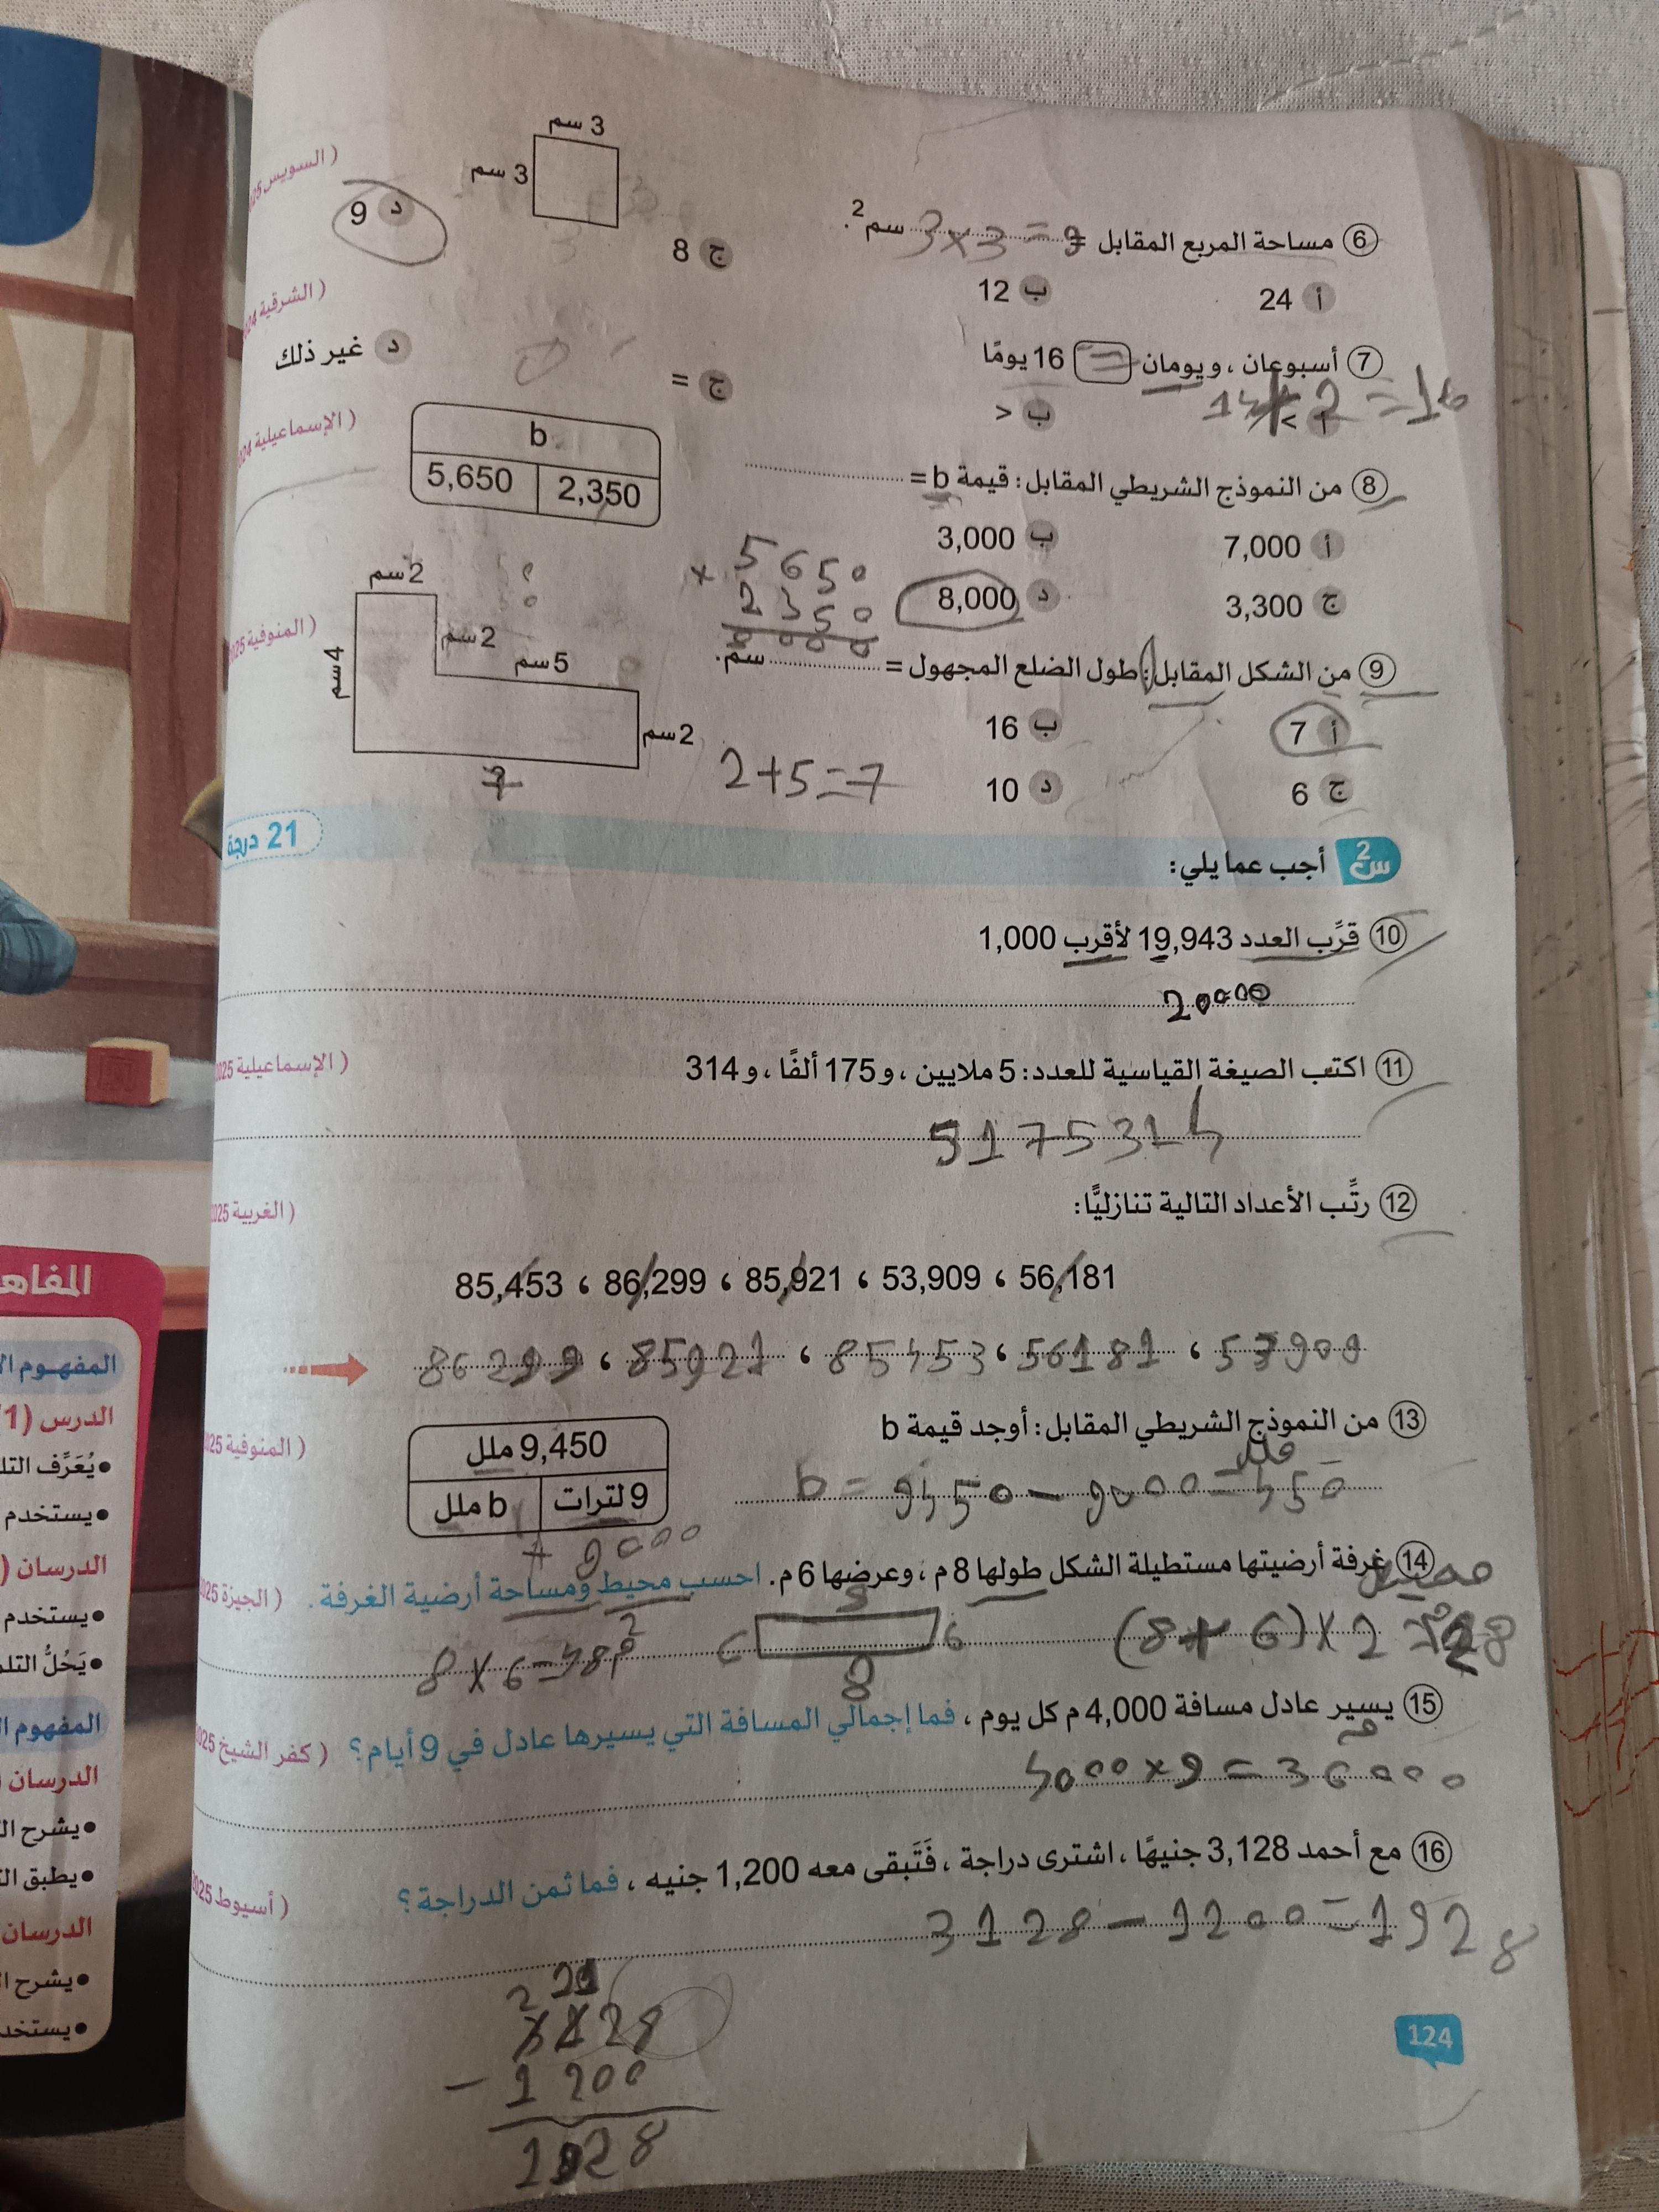 3 سم
3 سم
( السويس
6 مساحة المربع المقابل = 3×3=9 سم2.
أ 24 ب 12 ج 8 د 9
( الشرقية
7 أسبوعان ، ويومان = 16 يومًا
14+2=16
أ < ب > ج = د غير ذلك
( الإسماعيلية
8 من النموذج الشريطي المقابل: قيمة b =
b
5,650 2,350
أ 7,000 ب 3,000
ج 3,300 د 8,000
5650
2350
8000
( المنوفية 2025
9 من الشكل المقابل: طول الضلع المجهول = سم.
2 سم
2 سم
5 سم
4 سم
2 سم
7
أ 7 ب 16
ج 6 د 10
2+5=7
س2 أجب عما يلي:
21 درجة
10 قرِّب العدد 19,943 لأقرب 1,000
20000
11 اكتب الصيغة القياسية للعدد: 5 ملايين ، و175 ألفًا ، و314
( الإسماعيلية 2025
5175314
12 رتِّب الأعداد التالية تنازليًّا:
( الغربية 2025
85,453 ، 86,299 ، 85,921 ، 53,909 ، 56,181
86299 ، 85921 ، 85453 ، 56181 ، 53909
13 من النموذج الشريطي المقابل: أوجد قيمة b
( المنوفية 2025
9,450 ملل
9 لترات b ملل
9000
b = 9450 - 9000 = 450 ملل
14 غرفة أرضيتها مستطيلة الشكل طولها 8 م ، وعرضها 6 م. احسب محيط ومساحة أرضية الغرفة.
( الجيزة 2025
محيط
(8+6)×2=28
8
6
6
8
8×6=48م2
15 يسير عادل مسافة 4,000 م كل يوم ، فما إجمالي المسافة التي يسيرها عادل في 9 أيام؟
( كفر الشيخ 2025
4000×9=36000 م
16 مع أحمد 3,128 جنيهًا ، اشترى دراجة ، فَتَبقى معه 1,200 جنيه ، فما ثمن الدراجة؟
( أسيوط 2025
3128 - 1200 = 1928
3128
- 1200
1928
124
المفاه
المفهوم
الدرس (1
يُعَرِّف
يستخدم
الدرسان (
يستخدم
يَحُلُّ
المفهوم
الدرسان
يشرح
يطبق
الدرسان
يشرح